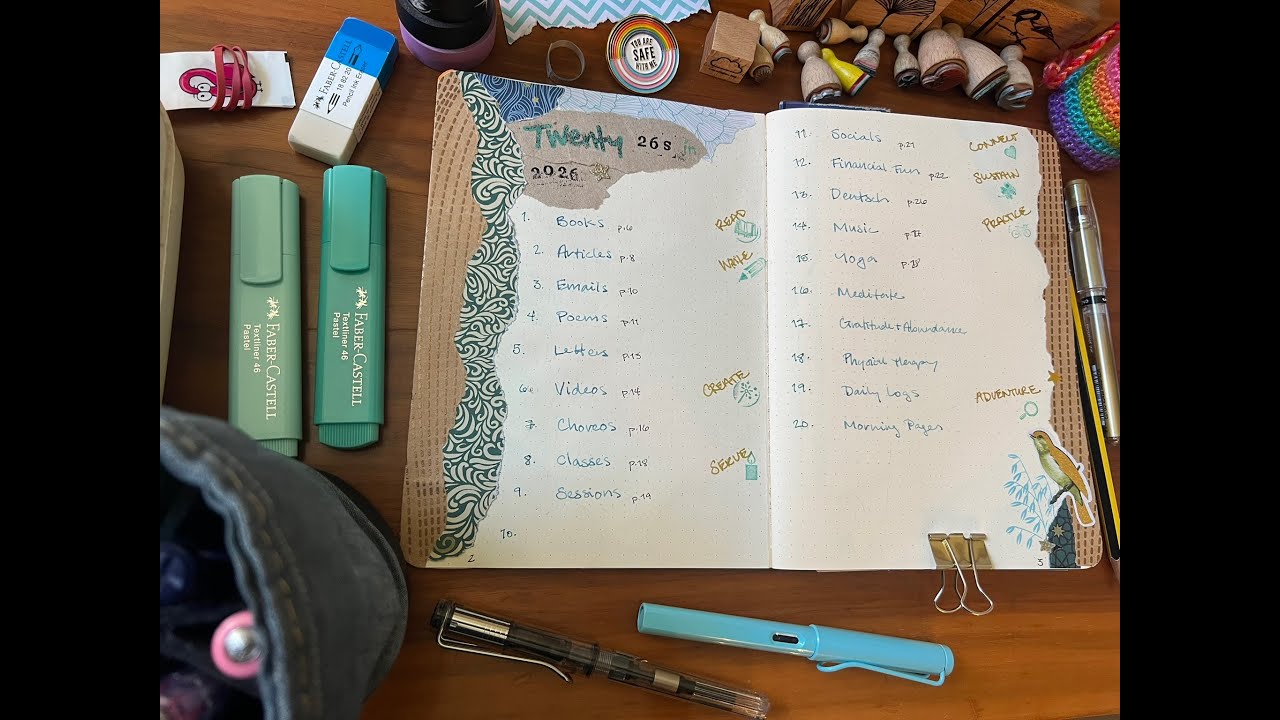 FABER-CASTELL
18 82 20
Pencil Ink Eraser
YOU ARE
SAFE
WITH ME
FABER-CASTELL
Textliner 46
Pastel
FABER-CASTELL
Textliner 46
Pastel
Twenty 26's in
2026
1. Books p.6
2. Articles p.8
3. Emails p.10
4. Poems p.11
5. Letters p.13
6. Videos p.14
7. Choreos p.16
8. Classes p.18
9. Sessions p.19
10.
READ
WRITE
CREATE
SERVE
2
11. Socials p.21
12. Financial Fun p.22
13. Deutsch p.26
14. Music
15. Yoga
16. Meditate
17. Gratitude + Abundance
18. Physical therapy
19. Daily Logs
20. Morning Pages
CONNECT
SUSTAIN
PRACTICE
ADVENTURE
3